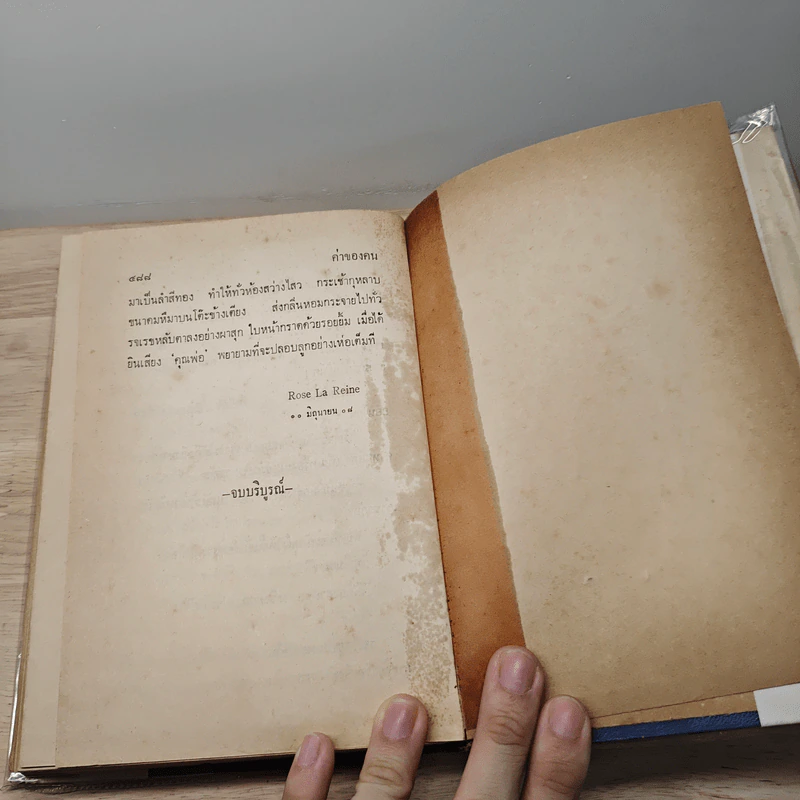 ๕๘๘ ค่าของคน
มาเป็นลำสีทอง ทำให้ทั่วห้องสว่างไสว กระเช้ากุหลาบ
ขนาดมหึมาบนโต๊ะข้างเตียง ส่งกลิ่นหอมกระจายไปทั่ว
รจเรขหลับตาลงอย่างผาสุก ใบหน้ากราดด้วยรอยยิ้ม เมื่อได้
ยินเสียง 'คุณพ่อ' พยายามที่จะปลอบลูกอย่างเห่อเต็มที
Rose La Reine
๑๐ มิถุนายน ๐๘
—จบบริบูรณ์—